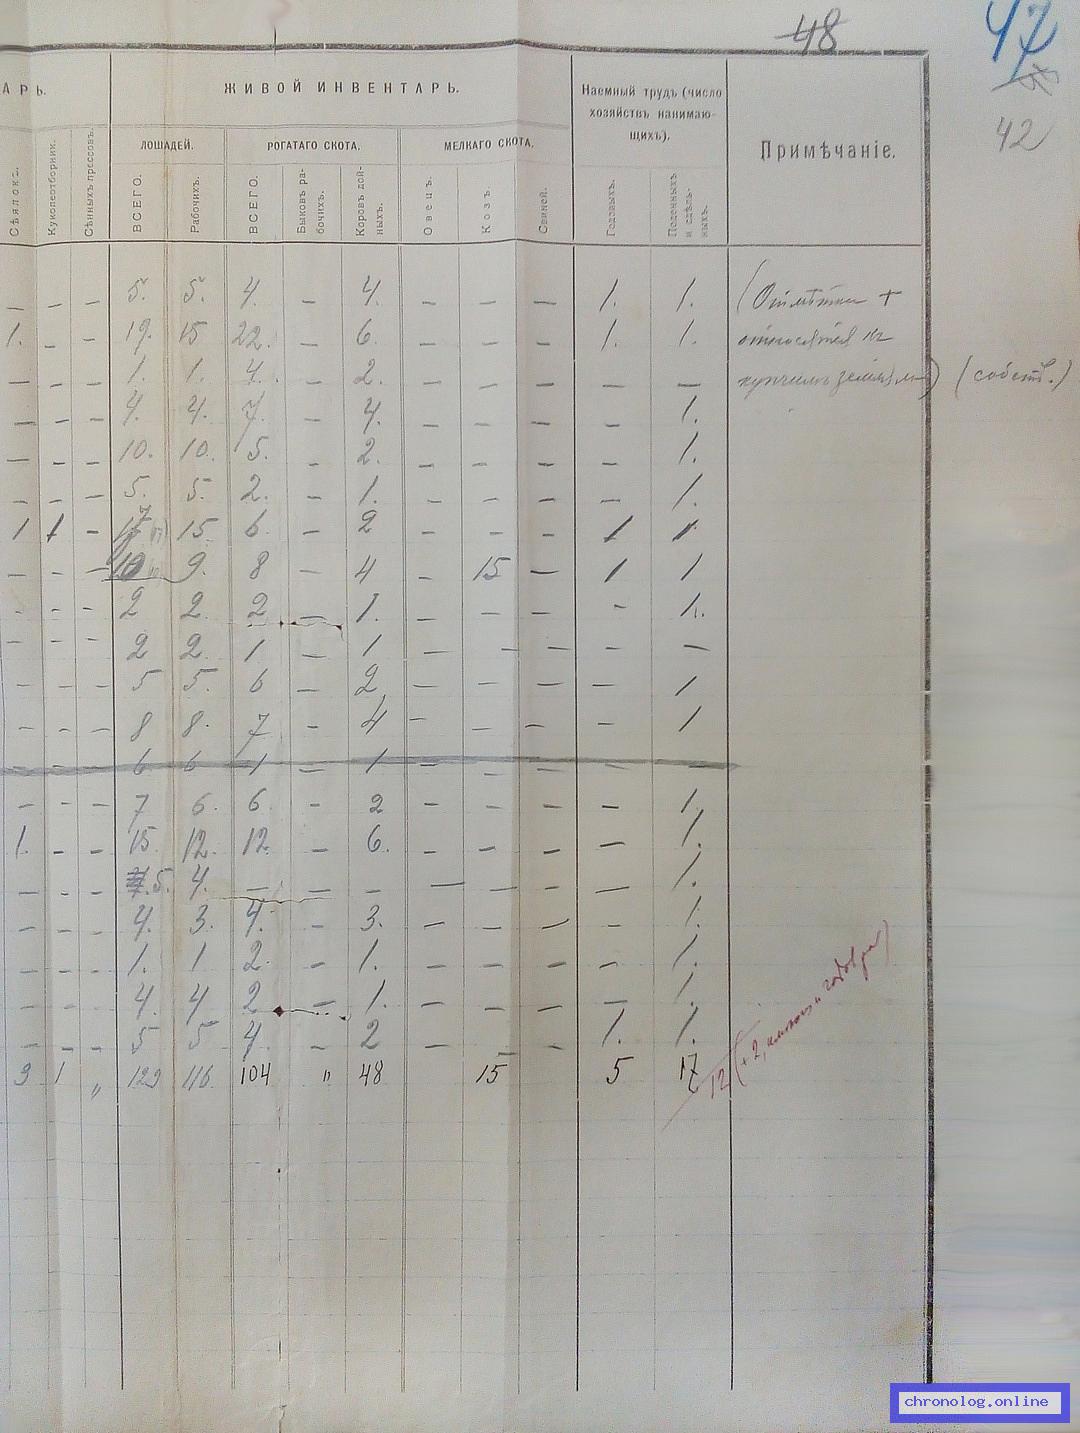 48
47
42
АРЬ.
ЖИВОЙ ИНВЕНТАРЬ.
Наемный трудъ (число
хозяйствъ нанимаю-
щихъ).
Примѣчаніе.
ЛОШАДЕЙ.
РОГАТАГО СКОТА.
МЕЛКАГО СКОТА.
Сѣялокъ.
Куколеотборник.
Сѣнныхъ прессовъ.
ВСЕГО.
Рабочихъ.
ВСЕГО.
Быковъ ра-
бочихъ.
Коровъ дой-
ныхъ.
Овецъ.
Козъ
Свиней.
Годовыхъ.
Поденныхъ
и сдѣль-
ныхъ.
— — — 5. 5. 4. — 4. — — — 1. 1. (Отмѣтки +
1. — — 19. 15 22. — 6. — — — 1. 1. относятся къ
— — — 1. 1. 4. — 2. — — — — — купчимъ землямъ) (собств.)
— — — 4. 4. 7. — 4. — — — — 1.
— — — 10. 10. 5. — 2. — — — — 1.
— — — 5. 5. 2. — 1. — — — — 1.
1 1 — 17 15 6. — 2 — — — 1 1
— — — 10 9. 8 — 4 — 15 — 1 1
— — — 2 2. 2 — 1. — — — — 1.
— — — 2 2. 1 — 1 — — — — —
— — — 5 5. 6 — 2 — — — — 1
— — — 8 8. 7 — 4 — — — — 1
— — — 6 6 1 — 1 — — — — —
— — — 7 6. 6. — 2 — — — — 1.
1. — — 15. 12. 12. — 6. — — — — 1.
— — — 5. 4. — — — — — — — 1.
— — — 4. 3. 4. — 3. — — — — 1.
— — — 1. 1 2. — 1. — — — — 1.
— — — 4. 4 2 — 1. — — — — 1.
— — — 5 5 4. — 2 — — — 1. 1.
3 1 „ 129 116 104 „ 48 15 5 17
12 (+2, имеющ. и годовра)
chronolog.online